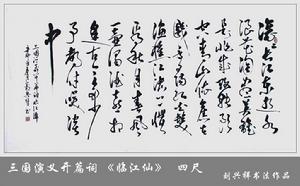 滚滚长江东逝水
浪花淘尽英雄
是非成败转头
空青山依旧在
几度夕阳红白发
渔樵江渚上惯看
秋月春风
一壶浊酒喜相
逢古今多少
事都付笑谈
中
三国演义开篇词《临江仙》 四尺
刘兴祥书法作品